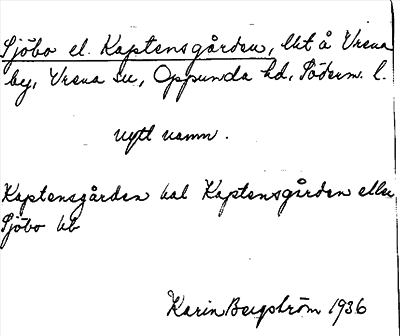 Sjöbo el. Kaptensgården, lht å Vrena
by, Vrena sn, Oppunda hd, Söderm. l.
nytt namn.
Kaptensgården hal Kaptensgården eller
Sjöbo hb
Karin Bergström 1936